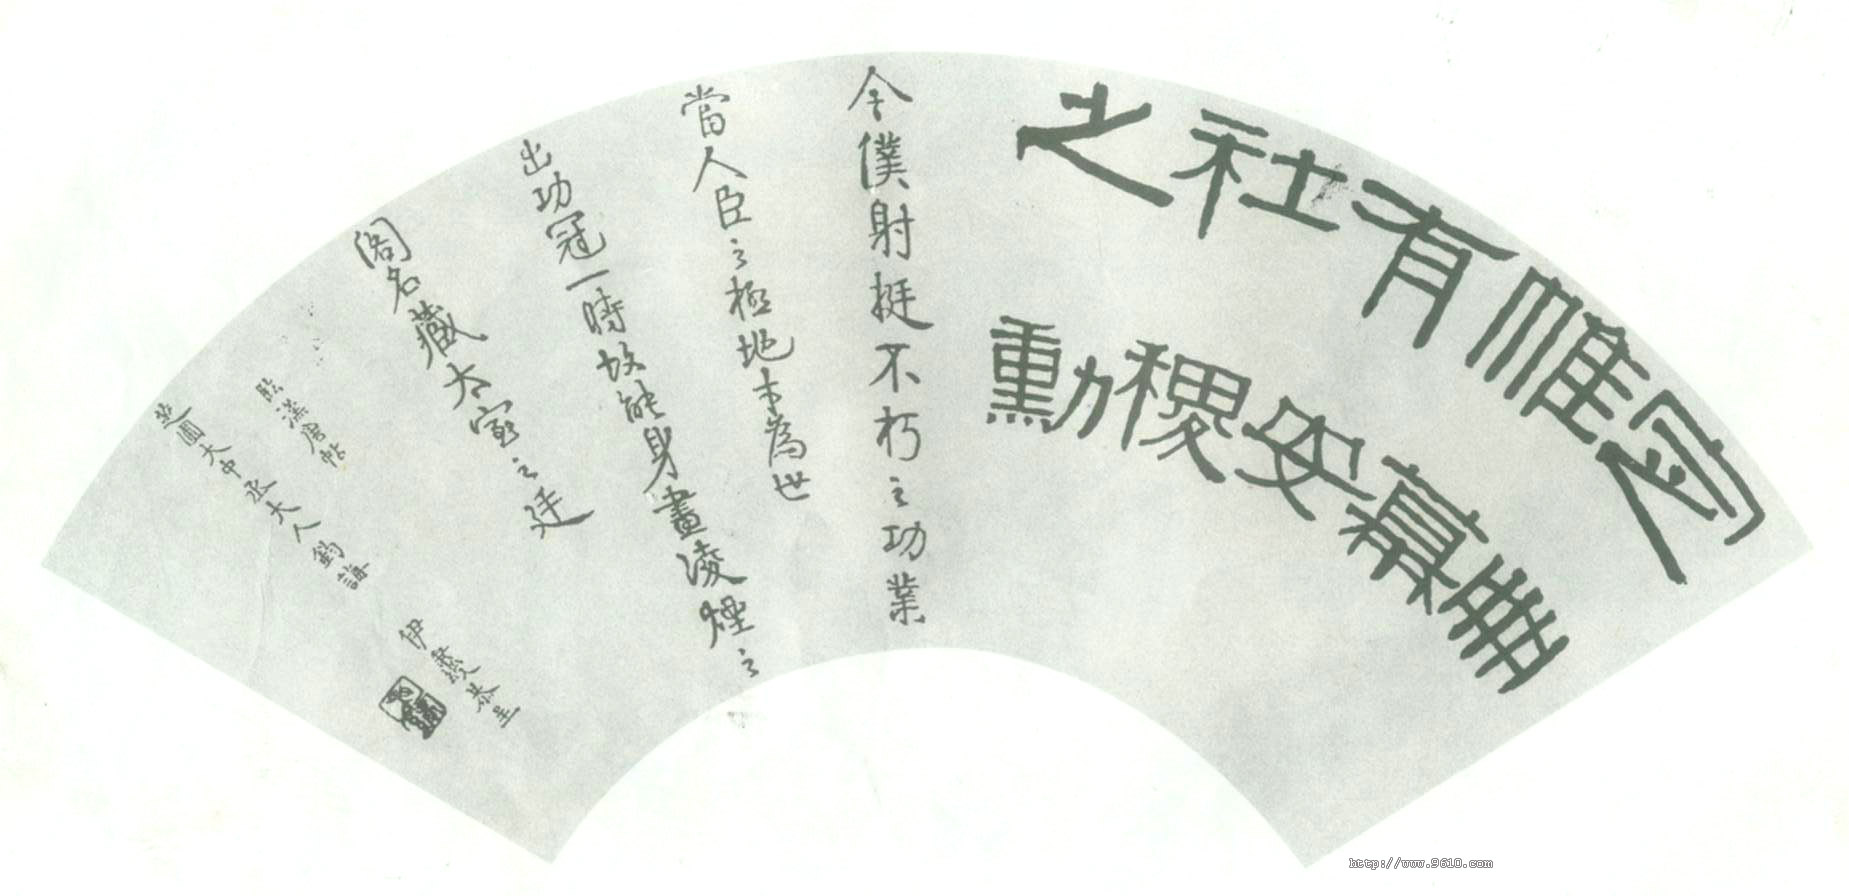 垂
帷幕
有安
社稷
之勳
今僕射挺不朽之功業
當人臣之極地才為世
出功冠一時故能身畫凌煙之
閣名藏太室之廷
臨漢唐帖
芝圃大中丞大人鈞誨
伊秉綬恭呈
http://www.9610.com